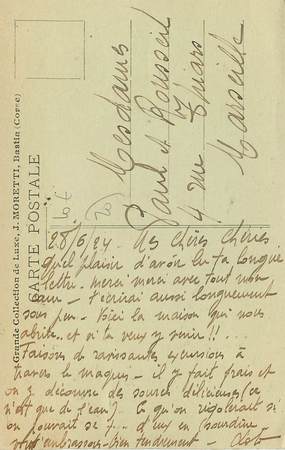 Grande Collection de Luxe, J. MORETTI, Bastia (Corse)
CARTE POSTALE
Mesdames
Paul et Rousseil
4 rue Thiars
Marseille
28/6/24. Mes chères chéries
quel plaisir d'avoir lu ta longue
lettre. merci merci avec tout mon
cœur – t'écrirai aussi longuement
sous peu – Voici la maison qui nous
abrite.. et si tu veux y venir !! ...
Faisons de ravissantes excursions à
travers le maquis – il y fait frais et
on y découvre des sources délicieuses (ce
n'est que de l'eau). Ce qu'on rigolerait si
on pouvait se ? ... d'eux en sourdine
embrassons bien tendrement –